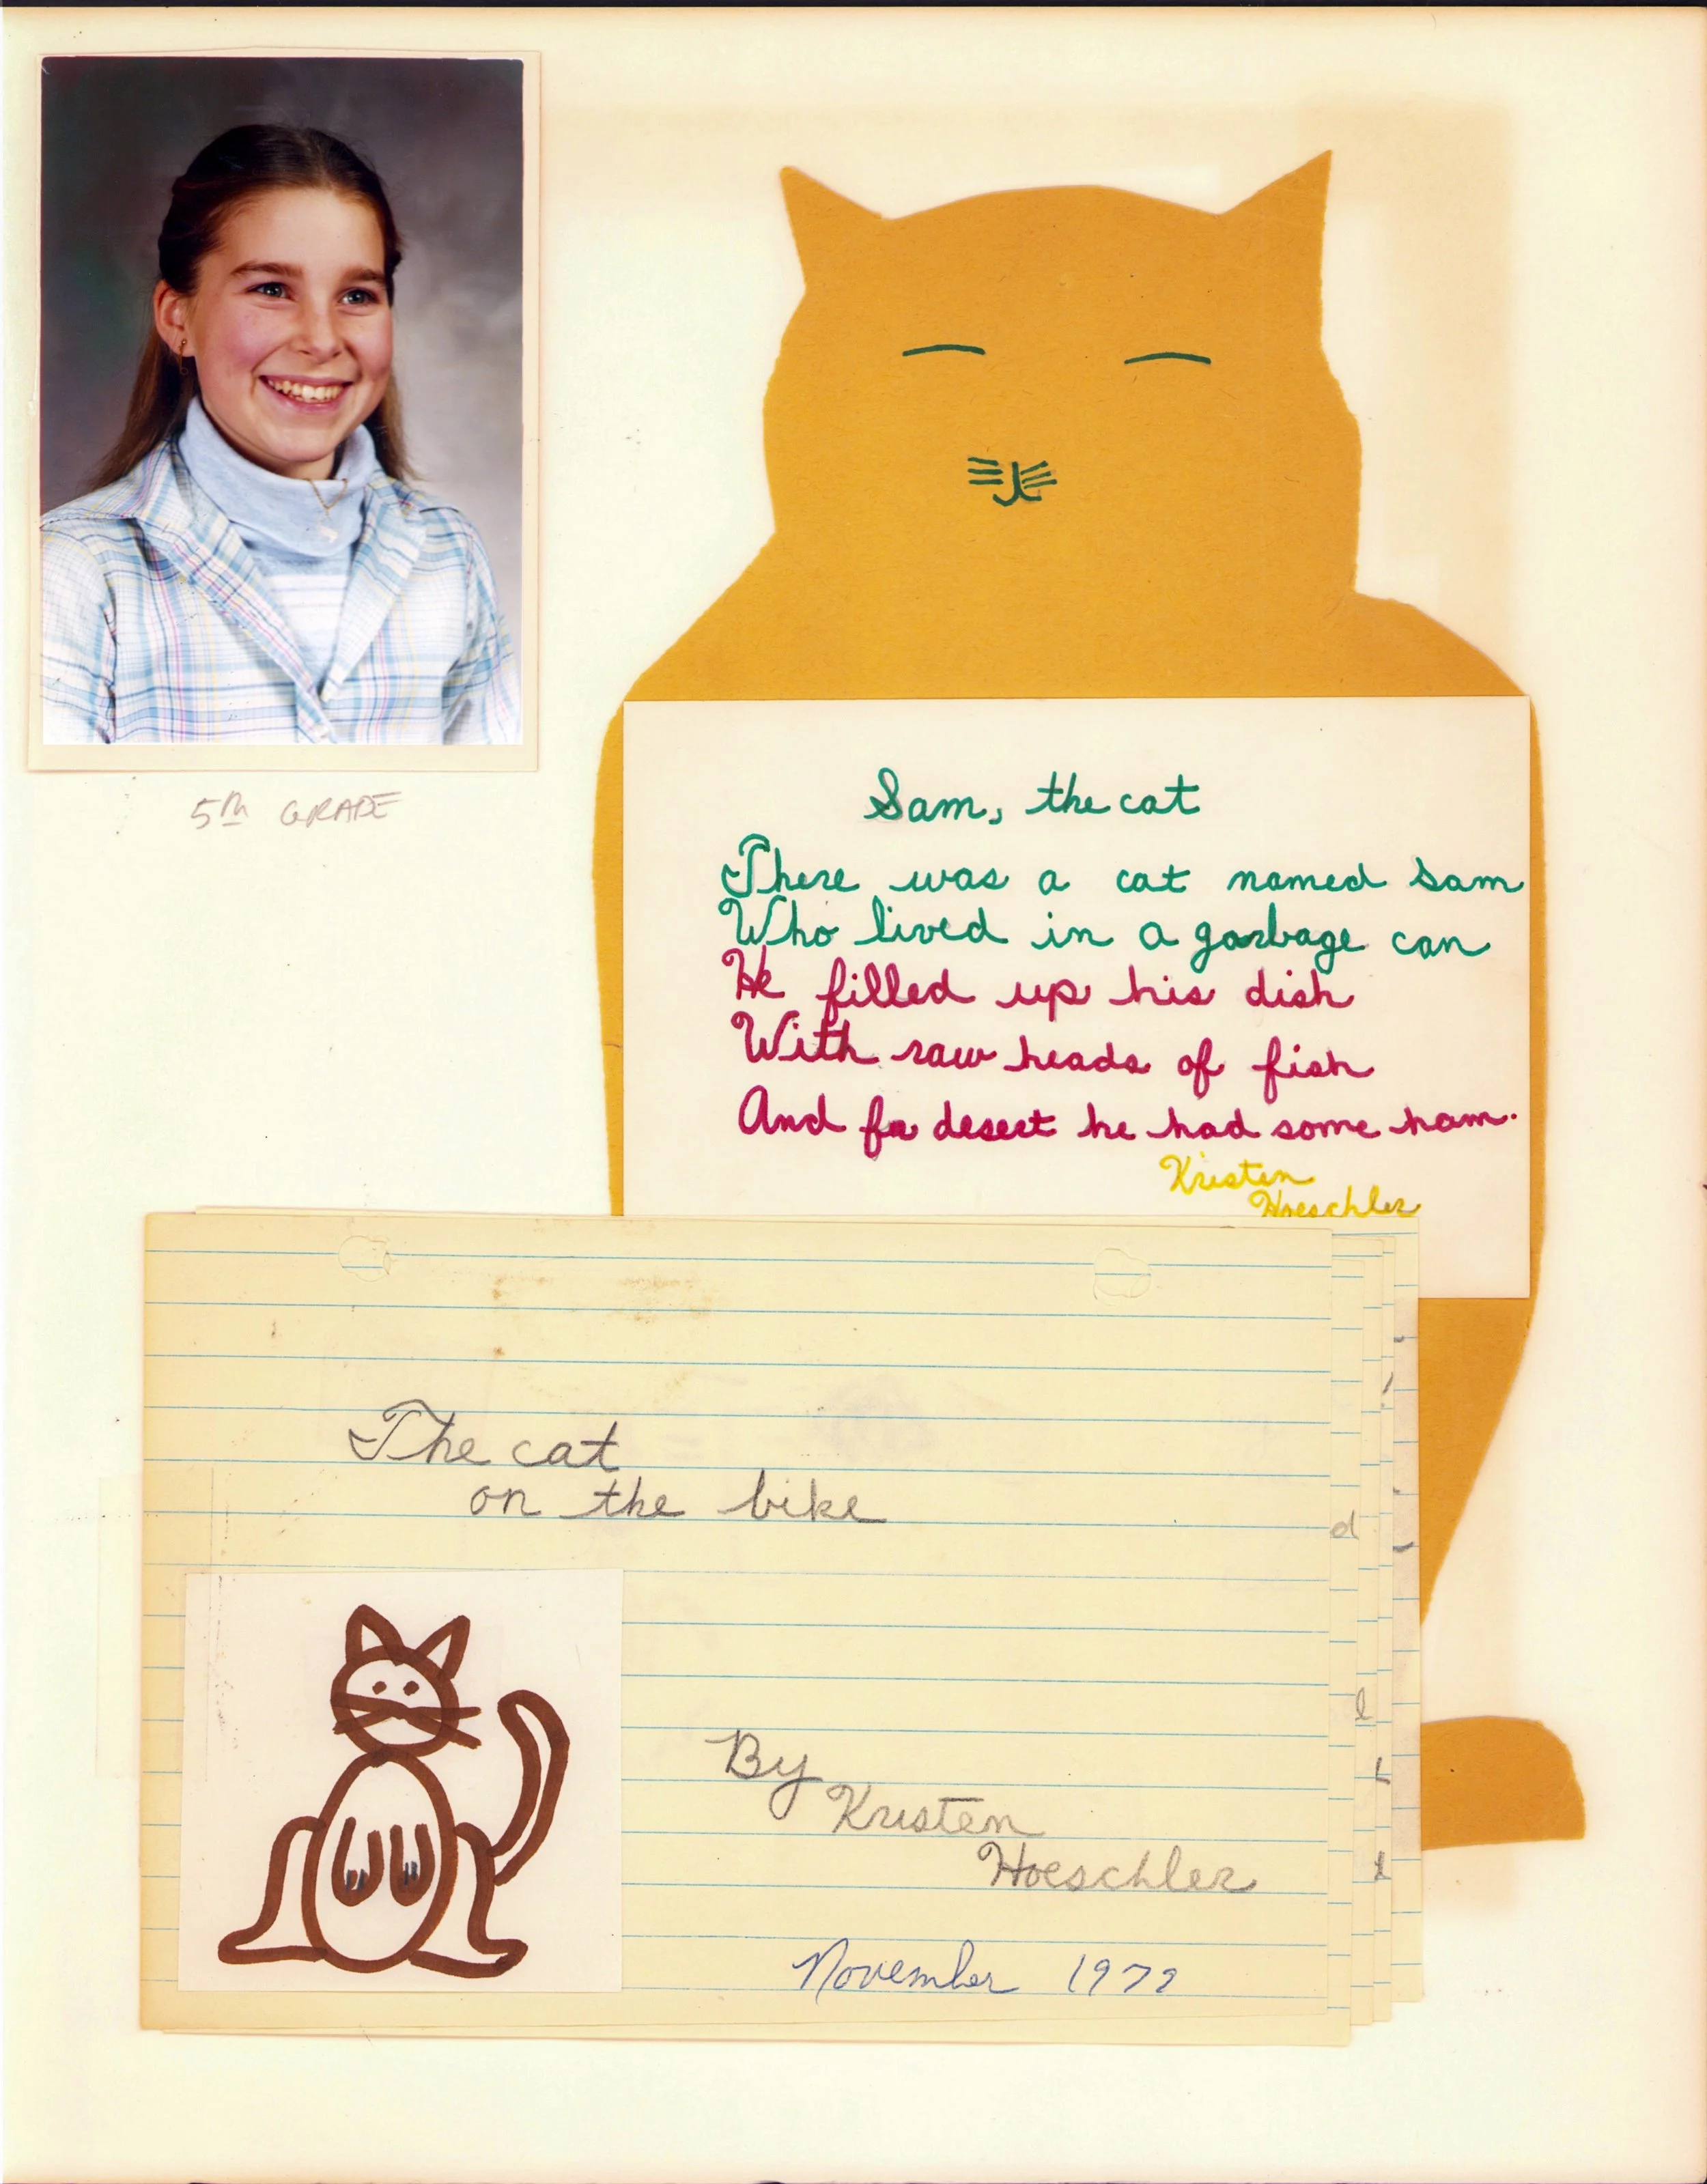 5th GRADE
Sam, the cat
There was a cat named Sam
Who lived in a garbage can
He filled up his dish
With raw heads of fish
And for desert he had some ham.
Kristen
Hoeschler
The cat
on the bike
By
Kristen
Hoeschler
November 1979
d
l
t